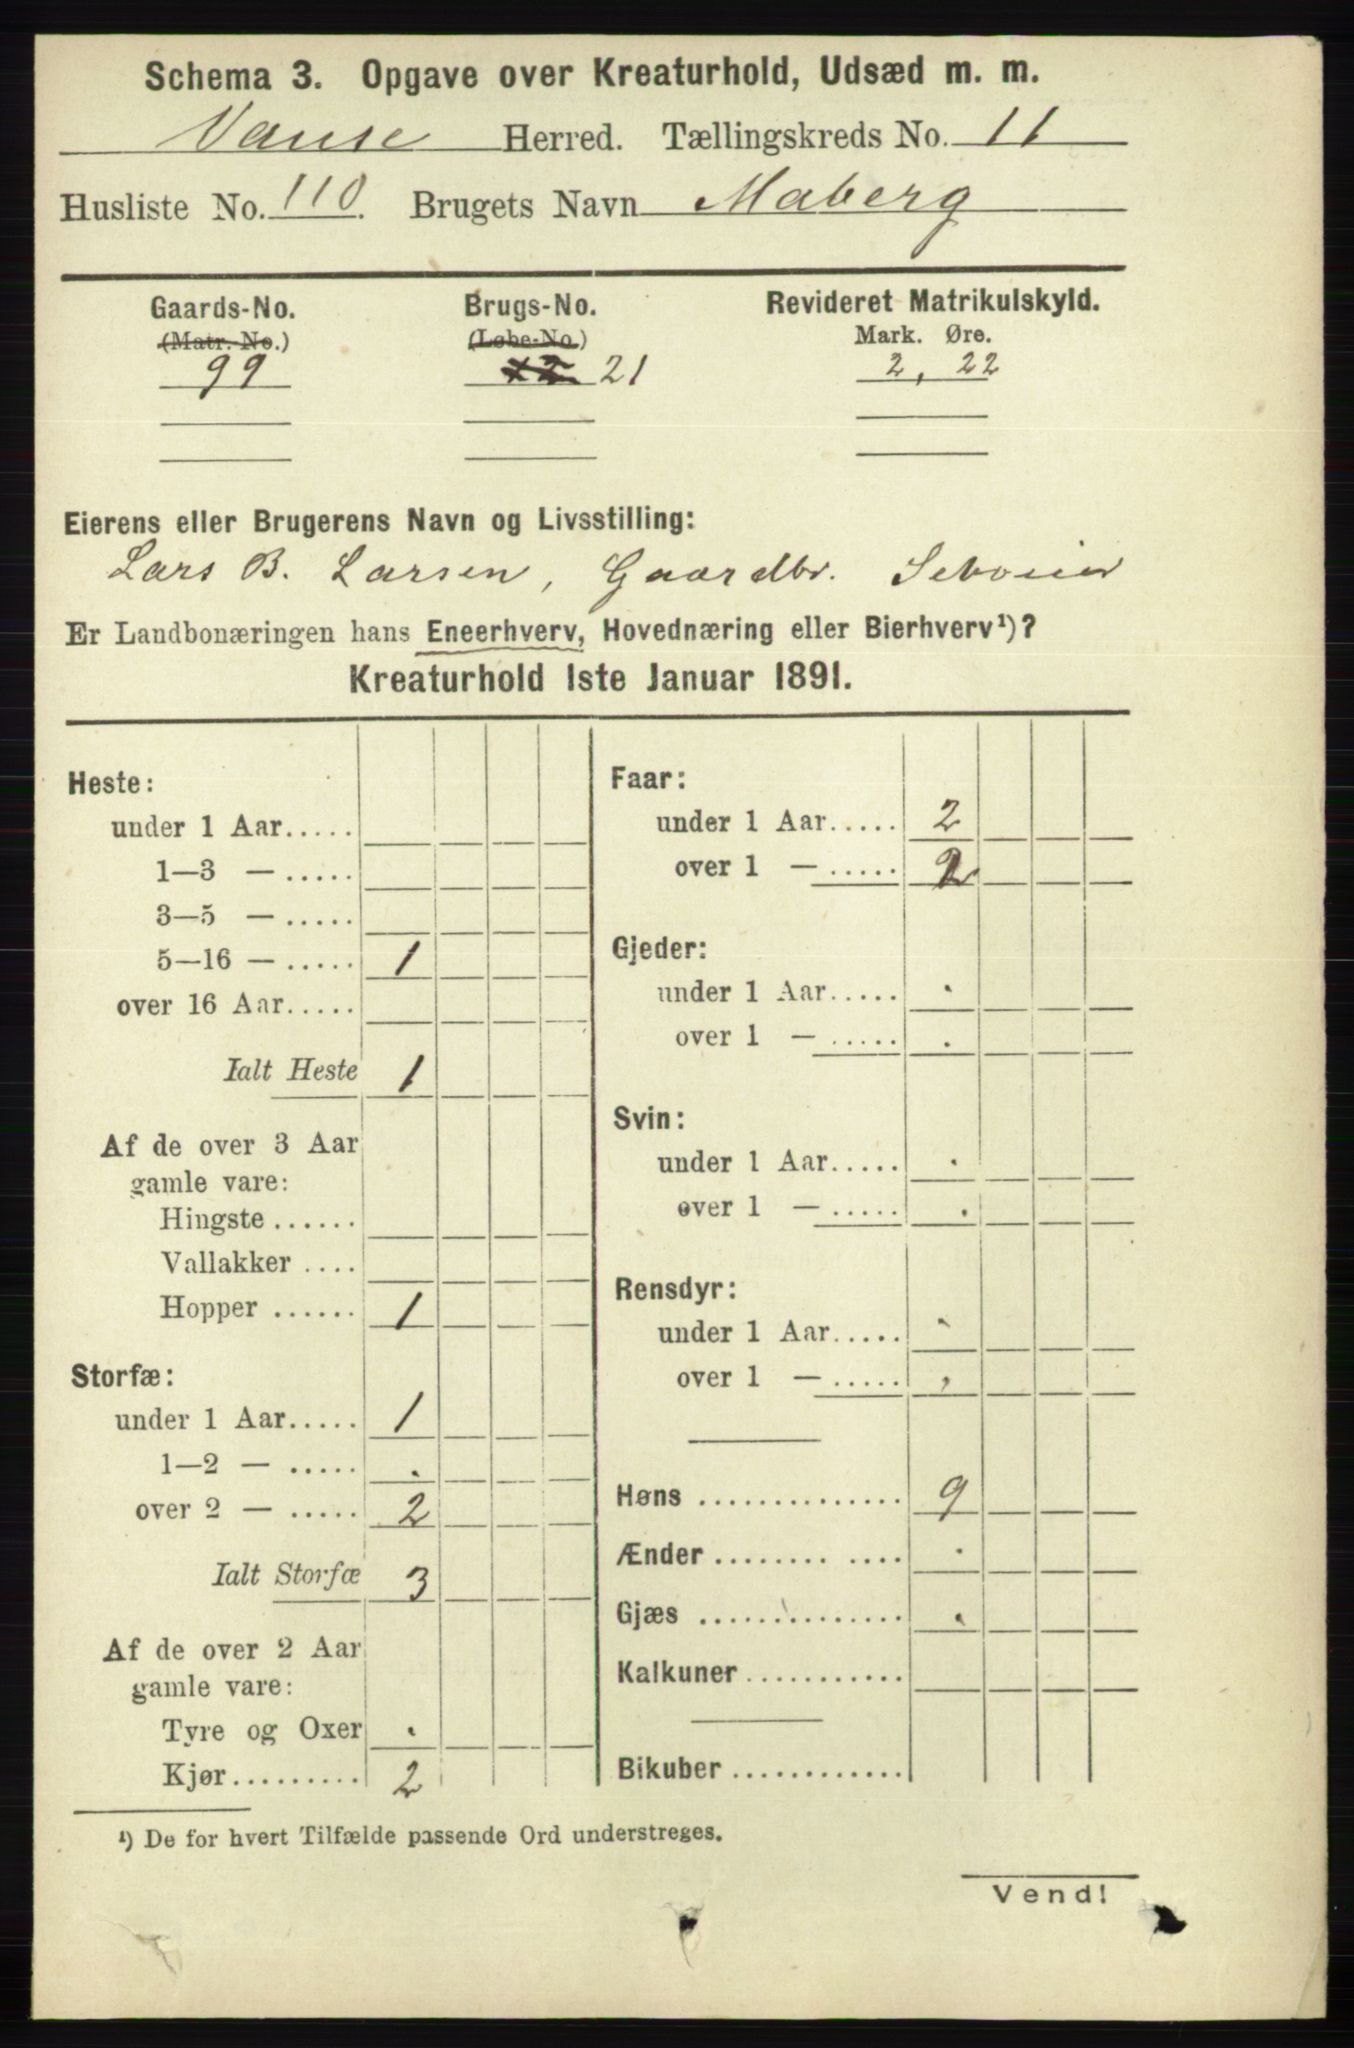 Schema 3. Opgave over Kreaturhold, Udsæd m. m.
Vanse Herred. Tællingskreds No. 11
Husliste No. 110. Brugets Navn Maberg
Gaards-No. Brugs-No. Revideret Matrikulskyld.
(Matr.-No.) (Løbe-No.) Mark. Øre.
99 21 2, 22
Eierens eller Brugerens Navn og Livsstilling:
Lars B. Larsen, Gaardbr. Selveier
Er Landbonæringen hans Eneerhverv, Hovednæring eller Bierhverv¹)?
Kreaturhold 1ste Januar 1891.
Heste:
under 1 Aar.....
1—3 — .....
3—5 — .....
5—16 — ..... 1
over 16 Aar.....
Ialt Heste 1
Af de over 3 Aar
gamle vare:
Hingste ......
Vallakker ....
Hopper ...... 1
Storfæ:
under 1 Aar..... 1
1—2 — ..... .
over 2 — ..... 2
Ialt Storfæ 3
Af de over 2 Aar
gamle vare:
Tyre og Oxer .
Kjør......... 2
Faar:
under 1 Aar..... 2
over 1 — ..... 2
Gjeder:
under 1 Aar..... .
over 1 — ..... .
Svin:
under 1 Aar..... .
over 1 — ..... .
Rensdyr:
under 1 Aar..... .
over 1 — ..... .
Høns .............. 9
Ænder ........ .... .
Gjæs .............. .
Kalkuner ...........
Bikuber ............
¹) De for hvert Tilfælde passende Ord understreges.
Vend!